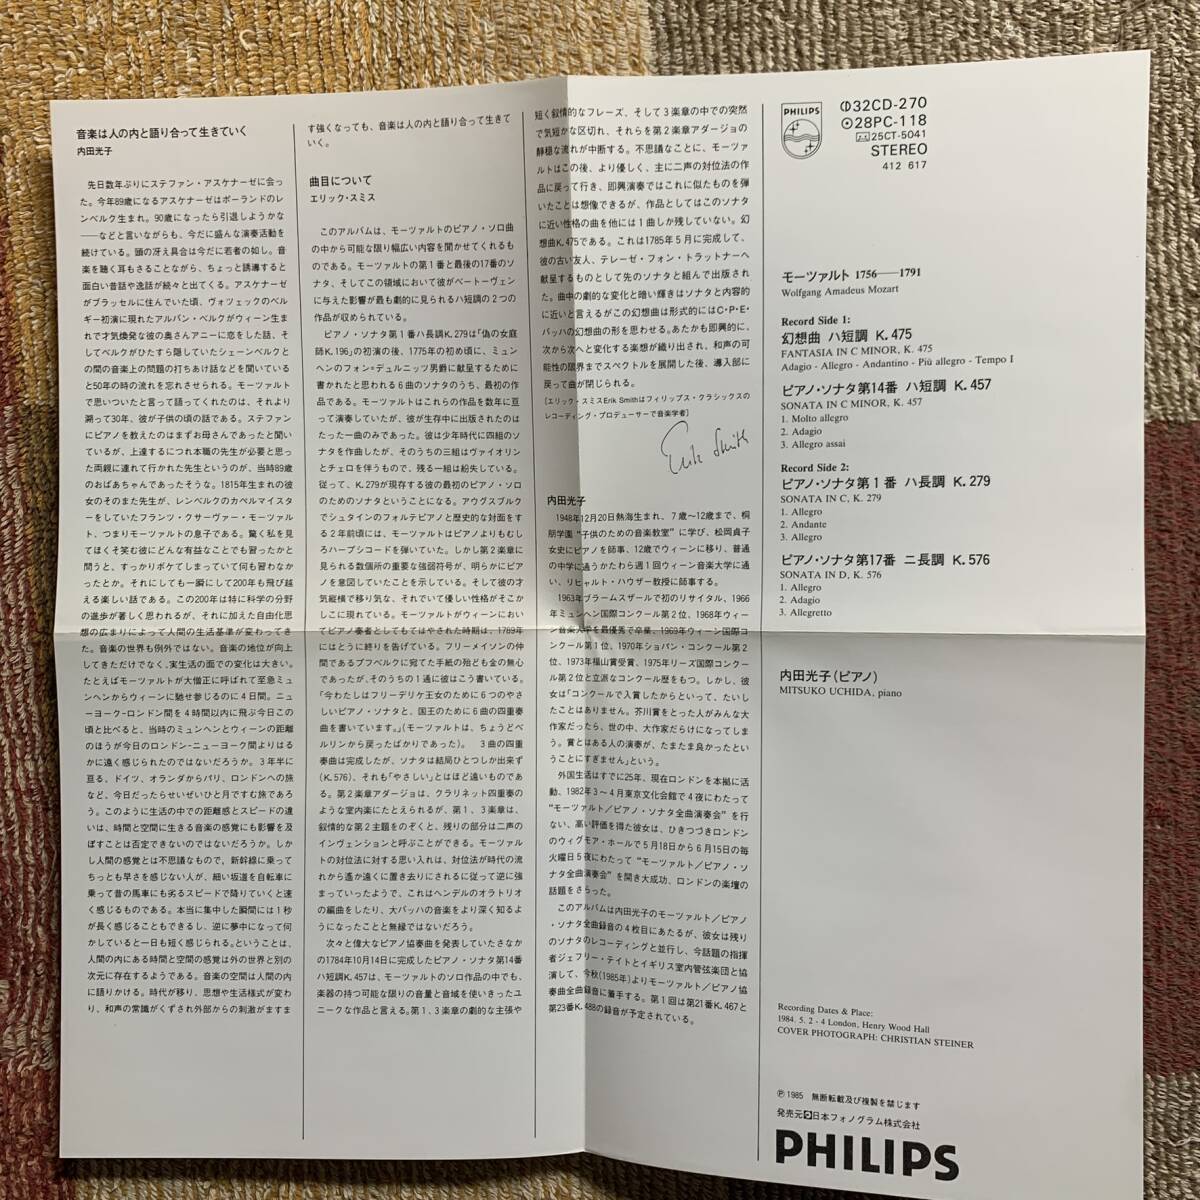 音楽は人の内と語り合って生きていく
内田光子
先日数年ぶりにステファン・アスケナーゼに会っ
た。今年89歳になるアスケナーゼはポーランドのレ
ンベルク生まれ。90歳になったら引退しようかな
――などと言いながらも、今だに盛んな演奏活動を
続けている。頭の冴え具合は今だに若者の如し。音
楽を聴く耳もさることながら、ちょっと誘導すると
面白い昔話や逸話が続々と出てくる。アスケナーゼ
がブラッセルに住んでいた頃、ヴォツェックのベル
ギー初演に現れたアルバン・ベルクがウィーン生ま
れで才気煥発な彼の奥さんアニーに恋をした話、そ
してベルクがひたすら隠していたシェーンベルクと
の間の音楽上の問題の打ちあけ話などを聞いている
と50年の時の流れを忘れさせられる。モーツァルト
で思いついたと言って語ってくれたのは、それより
溯って30年、彼が子供の頃の話である。ステファン
にピアノを教えたのはまずお母さんであったと聞い
ているが、上達するにつれ本職の先生が必要と思っ
た両親に連れて行かれた先生というのが、当時89歳
のおばあちゃんであったそうな。1815年生まれの彼
女のそのまた先生が、レンベルクのカペルマイスタ
ーをしていたフランツ・クサーヴァー・モーツァル
ト、つまりモーツァルトの息子である。驚く私を見
てほくそ笑む彼にどんな有益なことでも習ったかと
問うと、すっかりボケてしまっていて何も習わなか
ったとか。それにしても一瞬にして200年も飛び越
える楽しい話である。この200年は特に科学の分野
の進歩が著しく思われるが、それに加えた自由化思
想の広まりによって人間の生活基準が変わってき
た。音楽の世界も例外ではない。音楽の地位が向上
してきただけでなく、実生活の面での変化は大きい。
たとえばモーツァルトが大僧正に呼ばれて至急ミュ
ンヘンからウィーンに馳せ参じるのに4日間。ニュ
ーヨーク-ロンドン間を4時間以内に飛ぶ今日この
頃と比べると、当時のミュンヘンとウィーンの距離
のほうが今日のロンドン-ニューヨーク間よりはる
かに遠く感じられたのではないだろうか。3年半に
亘る、ドイツ、オランダからパリ、ロンドンへの旅
など、今日だったらせいぜいひと月ですむ旅であろ
う。このように生活の中での距離感とスピードの違
いは、時間と空間に生きる音楽の感覚にも影響を及
ぼすことは否定できないのではないだろうか。しか
し人間の感覚とは不思議なもので、新幹線に乗って
ちっとも早さを感じない人が、細い坂道を自転車に
乗って昔の馬車にも劣るスピードで降りていくと速
く感じるものである。本当に集中した瞬間には1秒
が長く感じることもできるし、逆に夢中になって何
かしていると一日も短く感じられる。ということは、
人間の内にある時間と空間の感覚は外の世界と別の
次元に存在するようである。音楽の空間は人間の内
に語りかける。時代が移り、思想や生活様式が変わ
り、和声の常識がくずされ外部からの刺激がますま
す強くなっても、音楽は人の内と語り合って生きて
いく。
曲目について
エリック・スミス
このアルバムは、モーツァルトのピアノ・ソロ曲
の中から可能な限り幅広い内容を聞かせてくれるも
のである。モーツァルトの第1番と最後の17番のソ
ナタ、そしてこの領域において彼がベートーヴェン
に与えた影響が最も劇的に見られるハ短調の2つの
作品が収められている。
ピアノ・ソナタ第1番ハ長調K.279は「偽の女庭
師K.196」の初演の後、1775年の初め頃に、ミュン
ヘンのフォン=デュルニッツ男爵に献呈するために
書かれたと思われる6曲のソナタのうち、最初の作
品である。モーツァルトはこれらの作品を数年に亘
って演奏していたが、彼が生存中に出版されたのは
たった一曲のみであった。彼は少年時代に四組のソ
ナタを作曲したが、そのうちの三組はヴァイオリン
とチェロを伴うもので、残る一組は紛失している。
従って、K.279が現存する彼の最初のピアノ・ソロ
のためのソナタということになる。アウグスブルク
でシュタインのフォルテピアノと歴史的な対面をす
る2年前頃には、モーツァルトはピアノよりもむし
ろハープシコードを弾いていた。しかし第2楽章に
見られる数個所の重要な強弱符号が、明らかにピア
ノを意図していたことを示している。そして彼の才
気縦横で移り気な、それでいて優しい性格がそこか
しこに現れている。モーツァルトがウィーンにおい
てピアノ奏者としてもてはやされた時期は、1789年
にはとうに終りを告げている。フリーメイソンの仲
間であるプフベルクに宛てた手紙の殆ども金の無心
であったが、そのうちの1通に彼はこう書いている。
「今わたしはフリーデリケ王女のために6つのやさ
しいピアノ・ソナタと、国王のために6曲の四重奏
曲を書いています。」(モーツァルトは、ちょうどベ
ルリンから戻ったばかりであった)。 3曲の四重
奏曲は完成したが、ソナタは結局ひとつしか出来ず
(K.576)、それも「やさしい」とはほど遠いものであ
る。第2楽章アダージョは、クラリネット四重奏の
ような室内楽にたとえられるが、第1、3楽章は、
叙情的な第2主題をのぞくと、残りの部分は二声の
インヴェンションと呼ぶことができる。モーツァル
トの対位法に対する思い入れは、対位法が時代の流
れから遙か遠くに置き去りにされるに従って逆に強
まっていったようで、これはヘンデルのオラトリオ
の編曲をしたり、大バッハの音楽をより深く知るよ
うになったことと無縁ではないだろう。
次々と偉大なピアノ協奏曲を発表していたさなか
の1784年10月14日に完成したピアノ・ソナタ第14番
ハ短調K.457は、モーツァルトのソロ作品の中でも、
楽器の持つ可能な限りの音量と音域を使いきったユ
ニークな作品と言える。第1、3楽章の劇的な主張や
短く叙情的なフレーズ、そして3楽章の中での突然
で気短かな区切れ、それらを第2楽章アダージョの
静穏な流れが中断する。不思議なことに、モーツァ
ルトはこの後、より優しく、主に二声の対位法の作
品に戻って行き、即興演奏ではこれに似たものを弾
いたことは想像できるが、作品としてはこのソナタ
に近い性格の曲を他には1曲しか残していない。幻
想曲K.475である。これは1785年5月に完成して、
彼の古い友人、テレーゼ・フォン・トラットナーへ
献呈するものとして先のソナタと組んで出版され
た。曲中の劇的な変化と暗い輝きはソナタと内容的
に近いと言えるがこの幻想曲は形式的にはC・P・E・
バッハの幻想曲の形を思わせる。あたかも即興的に、
次から次へと変化する楽想が織り出され、和声の可
能性の限界までスペクトルを展開した後、導入部に
戻って曲が閉じられる。
[エリック・スミスErik Smithはフィリップス・クラシックスの
レコーディング・プロデューサーで音楽学者]
Erik Smith
内田光子
1948年12月20日熱海生まれ、7歳〜12歳まで、桐
朋学園“子供のための音楽教室”に学び、松岡貞子
女史にピアノを師事、12歳でウィーンに移り、普通
の中学に通うかたわら週1回ウィーン音楽大学に通
い、リヒャルト・ハウザー教授に師事する。
1963年ブラームスザールで初のリサイタル、1966
年ミュンヘン国際コンクール第2位、1968年ウィー
ン音楽大学を最優秀で卒業、1969年ウィーン国際コ
ンクール第1位、1970年ショパン・コンクール第2
位、1973年福山賞受賞、1975年リーズ国際コンクー
ル第2位と立派なコンクール歴をもつ。しかし、彼
女は「コンクールで入賞したからといって、たいし
たことはありません。芥川賞をとった人がみんな大
作家だったら、世の中、大作家だらけになってしま
う。賞とはある人の演奏が、たまたま良かったとい
うことにすぎません」という。
外国生活はすでに25年、現在ロンドンを本拠に活
動、1982年3〜4月東京文化会館で4夜にわたって
“モーツァルト/ピアノ・ソナタ全曲演奏会”を行
ない、高い評価を得た彼女は、ひきつづきロンドン
のウィグモア・ホールで5月18日から6月15日の毎
火曜日5夜にわたって“モーツァルト/ピアノ・ソ
ナタ全曲演奏会”を開き大成功、ロンドンの楽壇の
話題をさらった。
このアルバムは内田光子のモーツァルト/ピアノ
・ソナタ全曲録音の4枚目にあたるが、彼女は残り
のソナタのレコーディングと並行し、今話題の指揮
者ジェフリー・テイトとイギリス室内管弦楽団と協
演して、今秋(1985年)よりモーツァルト/ピアノ協
奏曲全曲録音に着手する。第1回は第21番K.467と
第23番K.488の録音が予定されている。
PHILIPS
32CD-270
28PC-118
25CT-5041
STEREO
412 617
モーツァルト 1756――1791
Wolfgang Amadeus Mozart
Record Side 1:
幻想曲 ハ短調 K.475
FANTASIA IN C MINOR, K. 475
Adagio - Allegro - Andantino - Più allegro - Tempo I
ピアノ・ソナタ第14番 ハ短調 K.457
SONATA IN C MINOR, K. 457
1. Molto allegro
2. Adagio
3. Allegro assai
Record Side 2:
ピアノ・ソナタ第1番 ハ長調 K.279
SONATA IN C, K. 279
1. Allegro
2. Andante
3. Allegro
ピアノ・ソナタ第17番 ニ長調 K.576
SONATA IN D, K. 576
1. Allegro
2. Adagio
3. Allegretto
内田光子(ピアノ)
MITSUKO UCHIDA, piano
Recording Dates & Place:
1984. 5. 2 - 4 London, Henry Wood Hall
COVER PHOTOGRAPH: CHRISTIAN STEINER
℗1985 無断転載及び複製を禁じます
発売元 日本フォノグラム株式会社
PHILIPS